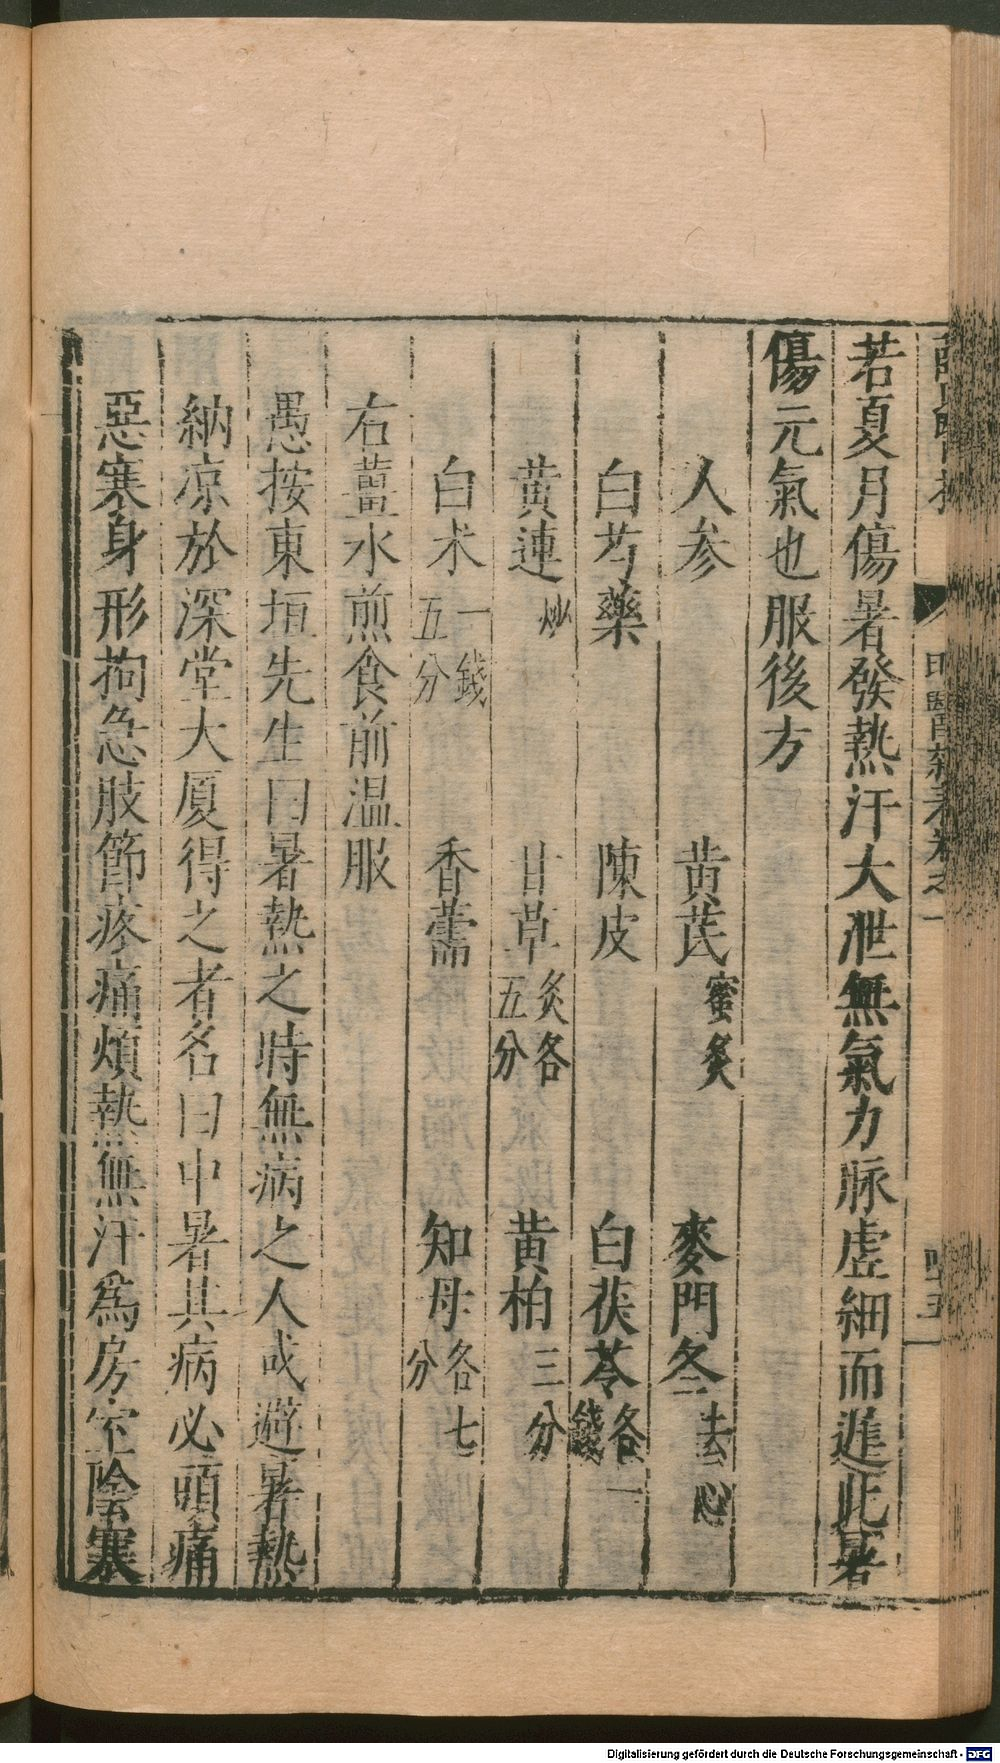 若夏月傷暑發熱汗大泄無氣力脉虛細而進此暑
傷元氣也服後方
人參 黃芪蜜炙 麥門冬去心
白芍藥 陳皮 白茯苓各一錢
黃連炒 甘草炙各五分 黃柏三分
白朮一錢五分 香薷 知母各七分
右薑水煎食前温服
愚按東垣先生曰暑熱之時無病之人或避暑熱
納凉於深堂大厦得之者名曰中暑其病必頭痛
惡寒身形拘急肢節疼痛煩熱無汗爲房室陰寒
Digitalisierung gefördert durch die Deutsche Forschungsgemeinschaft - DFG